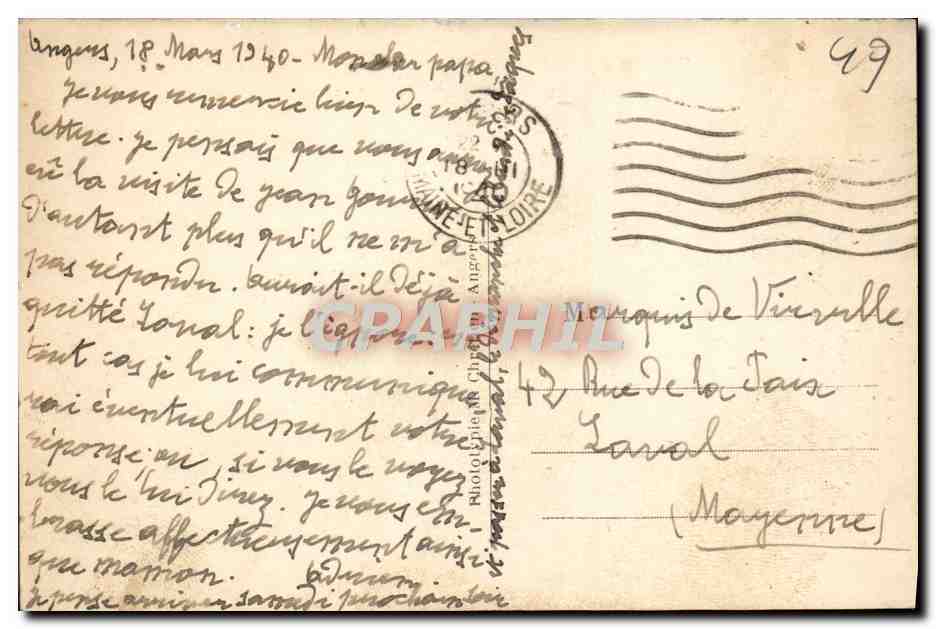 Angers, 18 Mars 1940 - Mon cher papa
je vous remercie bien de votre
lettre. je pensais que vous auriez
eû la visite de jean
d'autant plus qu'il ne m'a
pas répondu. Aurait-il déjà
quitté Laval : je l'ignore. en
tout cas je lui communique
rai éventuellement votre
réponse ou, si vous le voyez
vous le lui direz. je vous em-
brasse affectueusement ainsi
que maman.
je pense arriver samedi prochain soir
49
MAINE ET LOIRE
Phototypie Angers
CPARPHIL
Marquis de Vireville
42 Rue de la Paix
Laval
(Mayenne)